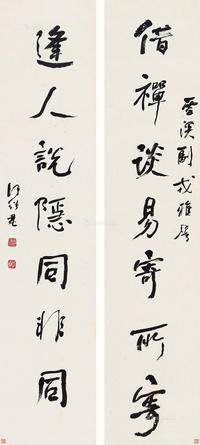 雲溪副戎雅屬
借禪談易寄所寄
逢人說隱同非同
何紹基